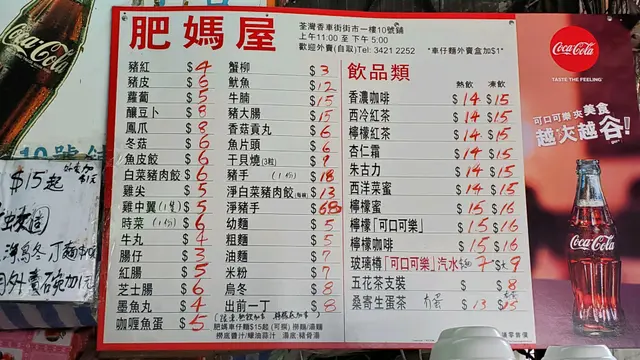 肥媽屋
荃灣香車街街市一樓10號鋪
上午11:00 至 下午5:00
歡迎外賣(自取)Tel: 3421 2252 *車仔麵外賣盒加$1*
豬紅 $4
豬皮 $6
蘿蔔 $5
釀豆卜 $8
鳳爪 $8
冬菇 $6
魚皮餃 $6
白菜豬肉餃 $6
雞尖 $5
雞中翼(1隻) $5
時菜(1份) $6
牛丸 $4
腸仔 $3
紅腸 $5
芝士腸 $6
墨魚丸 $4
咖喱魚蛋 $5
蟹柳 $3
魷魚 $12
牛腩 $15
豬大腸 $15
香菇貢丸 $6
魚片頭 $6
干貝燒(3粒) $9
豬手(1份) $18
淨白菜豬肉餃 $13
淨豬手 $68
幼麵 $5
粗麵 $5
油麵 $7
米粉 $7
烏冬 $8
出前一丁 $8
肥媽車仔麵$15起(可撰)撈麵/湯麵
撈底醬汁/蠔油蒜汁 湯底:豬骨湯
飲品類
熱飲 凍飲
香濃咖啡 $14 $15
西冷紅茶 $14 $15
檸檬紅茶 $14 $15
杏仁霜 $14 $15
朱古力 $14 $15
西洋菜蜜 $14 $15
檸檬蜜 $15 $16
檸檬「可口可樂」 $15 $16
檸檬咖啡 $15 $16
玻璃樽「可口可樂」汽水 7 $9
五花茶支裝 $ $8
桑寄生蛋茶 $13 $15
Coca-Cola
TASTE THE FEELING
可口可樂 夾美食
越夾越谷!
Coca-Cola
$15起